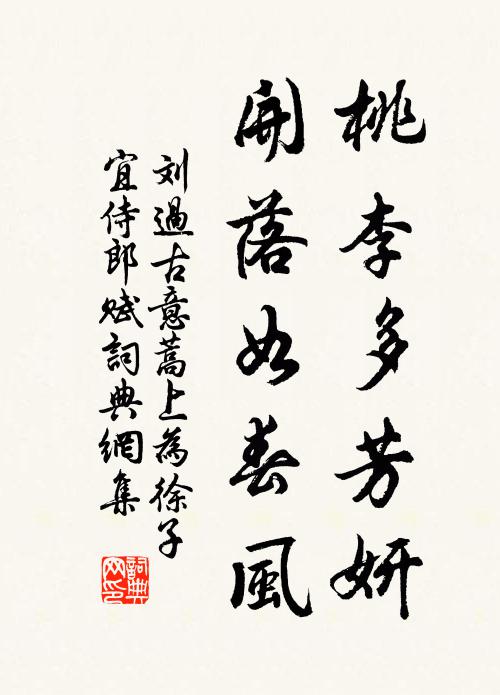 桃李多芳妍
開落如春風
刘過古意蒿上為徐子
宜侍郎赋詞典網集
詞典网印